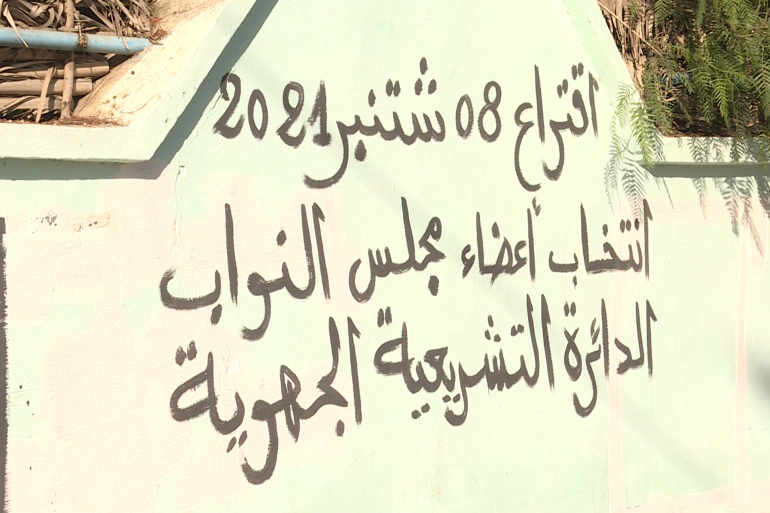 اقتراع 08 شتنبر 2021
انتخاب أعضاء مجلس النواب
الدائرة التشريعية الجهوية